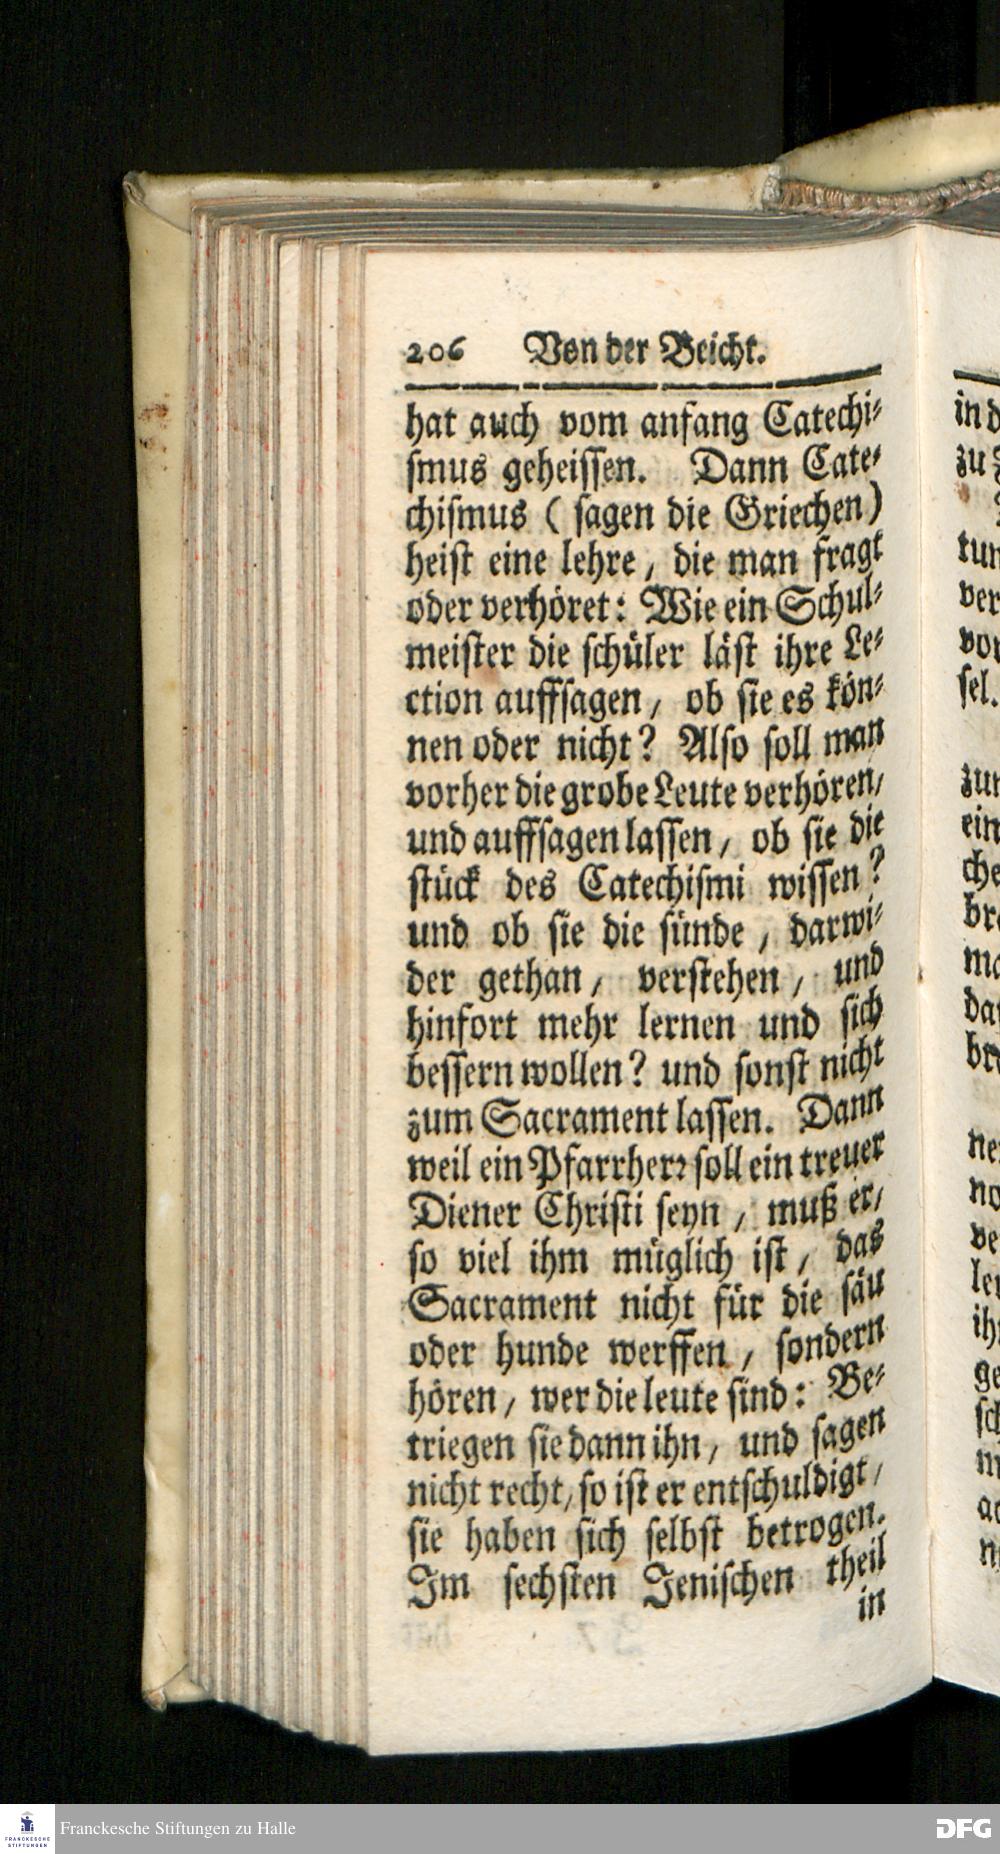 206 Von der Beicht.
hat auch vom anfang Catechi-
smus geheissen. Dann Cate-
chismus ( sagen die Griechen)
heist eine lehre, die man fragt
oder verhöret: Wie ein Schul-
meister die schüler läst ihre Le-
ction auffsagen, ob sie es kön-
nen oder nicht? Also soll man
vorher die grobe Leute verhören,
und auffsagen lassen, ob sie die
stück des Catechismi wissen?
und ob sie die sünde, darwi-
der gethan, verstehen, und
hinfort mehr lernen und sich
bessern wollen? und sonst nicht
zum Sacrament lassen. Dann
weil ein Pfarrherr soll ein treuer
Diener Christi seyn, muß er,
so viel ihm müglich ist, das
Sacrament nicht für die säu
oder hunde werffen, sondern
hören, wer die leute sind: Be-
triegen sie dann ihn, und sagen
nicht recht, so ist er entschuldigt,
sie haben sich selbst betrogen.
Im sechsten Jenischen theil
in
in d
zu
tun
ver
vor
sel.
zur
ein
che
bre
ma
dar
bre
ne
no
ve
ler
ih
ge
sch
Franckesche Stiftungen zu Halle
FRANCKESCHE
STIFTUNGEN
DFG